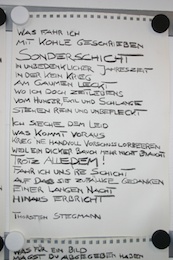 WAS FAHR ICH
MIT KOHLE GESCHRIEBEN
SONDERSCHICHT
IN UNBEDENKLICHER JAHRESZEIT
IN DER KEIN KRIEG
AM GAUMEN LECKT
WO ICH DOCH ZEITLEBENS
VOM HUNGER EVIL UND SCHLANGE
STEHEN REIN UND UNBEFLECKT
ICH DEM LEID
WAS KOMMT VORAUS
KRIEG NE HANDVOLL VORSCHUSSLORBEEREN
WEIL EIN DICKER BAUCH MEHR NICHT BRAUCHT
TROTZ ALLEDEM!
FAHR ICH UNS RE SCHICHT
AUF DASS SIE ZUFÄLLIGE GEDANKEN
EINER LANGEN NACHT
HINAUS ERBRICHT
THORSTEN STEGMANN
WAS FÜR EIN BILD
HABEN